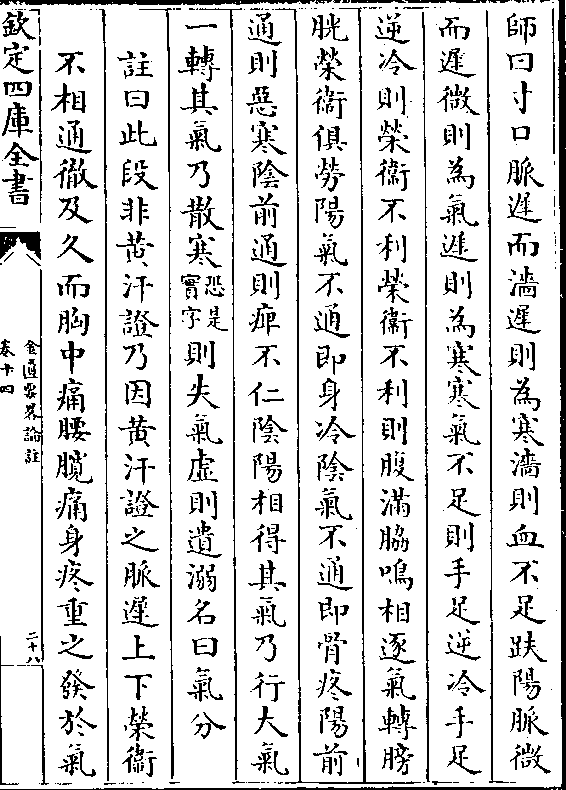 師曰寸口脈遲而濇遲則為寒濇則血不足趺陽脈微
而遲微則為氣遲則為寒寒氣不足則手足逆冷手足
逆冷則榮衞不利榮衞不利則腹滿脇鳴相逐氣轉膀
胱榮衞俱勞陽氣不通即身冷陰氣不通即骨疼陽前
通則惡寒陰前通則痺不仁陰陽相得其氣乃行大氣
一轉其氣乃散寒恐是實字則失氣虛則遺溺名曰氣分
註曰此段非黄汗證乃因黄汗證之脈遲上下榮衞
不相通徹及久而胸中痛腰髖痛身疼重之發於氣
欽定四庫全書
金匱要畧論註
卷十四
二十八